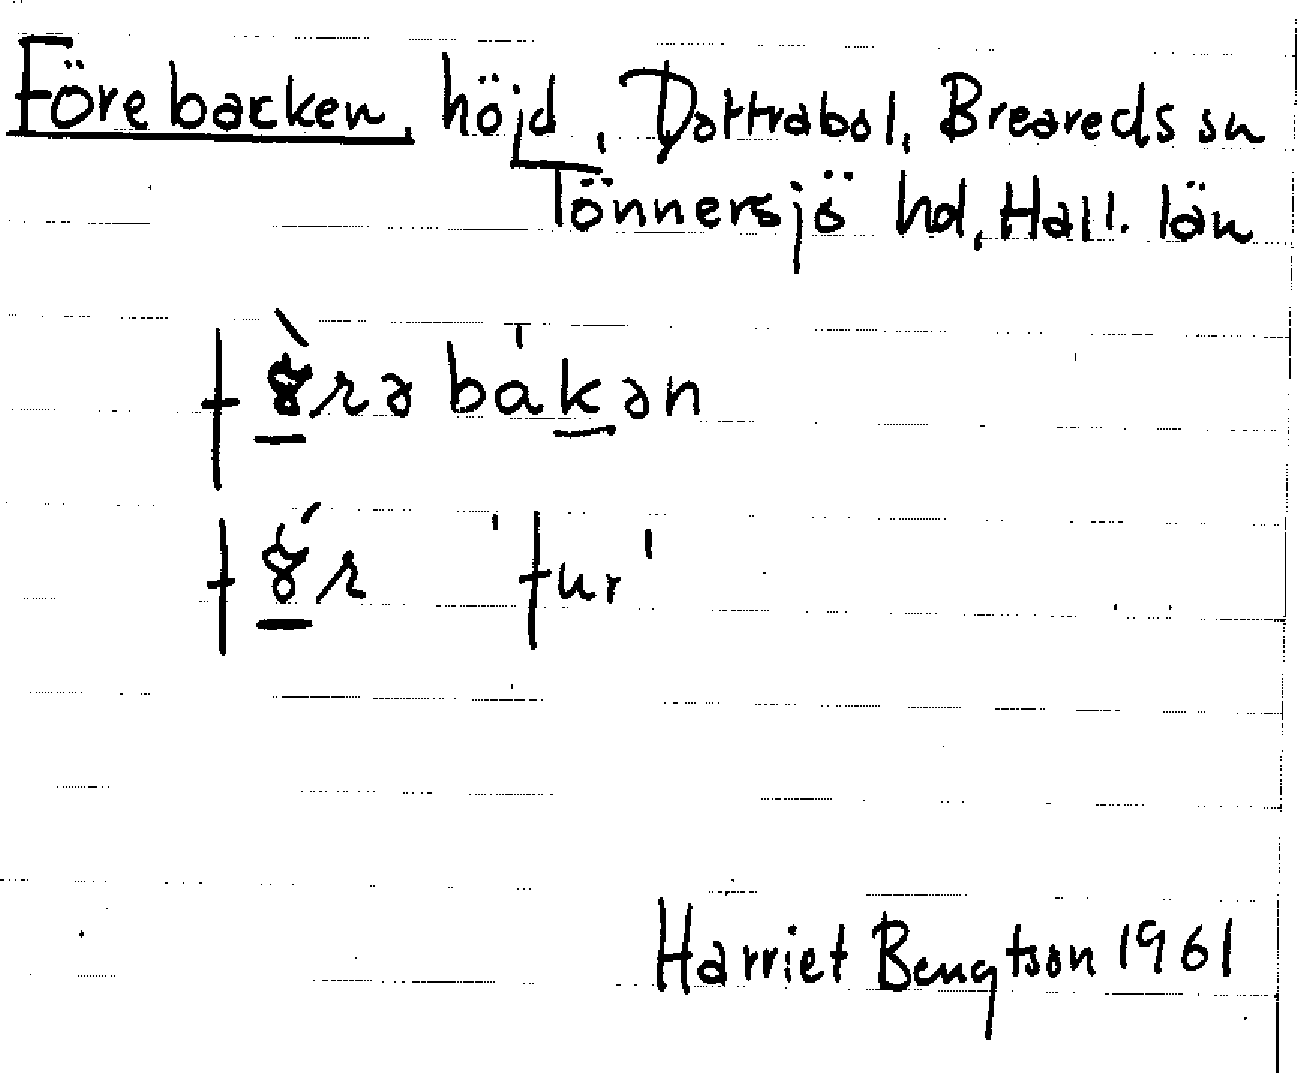 Förebacken, höjd, Dattrabol, Breareds sn
Tönnersjö hd, Hall. län
fö̀rəbákən
fǿr 'fur'
Harriet Bengtson 1961